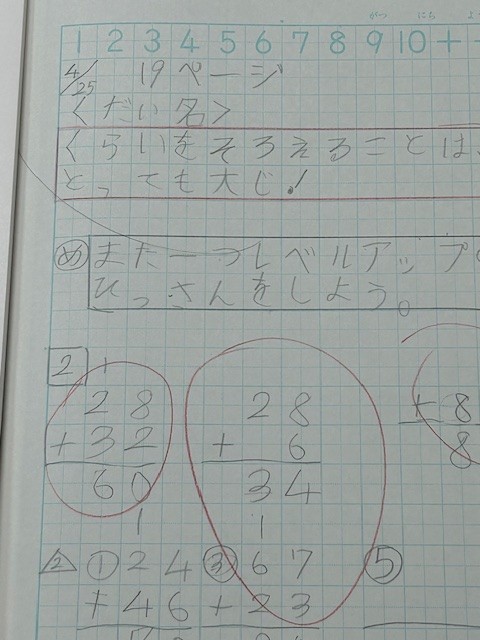 がつ にち よ
1 2 3 4 5 6 7 8 9 10 + -
4/25 19ページ
くだい名>
くらいをそろえることは、
とっても大じ!
め また一つレベルアップ
ひっさんをしよう。
2 1
28 28 +8
+32 + 6 8
60 34
1 1
2 ① 24 ③ 67 ⑤
+46 +23